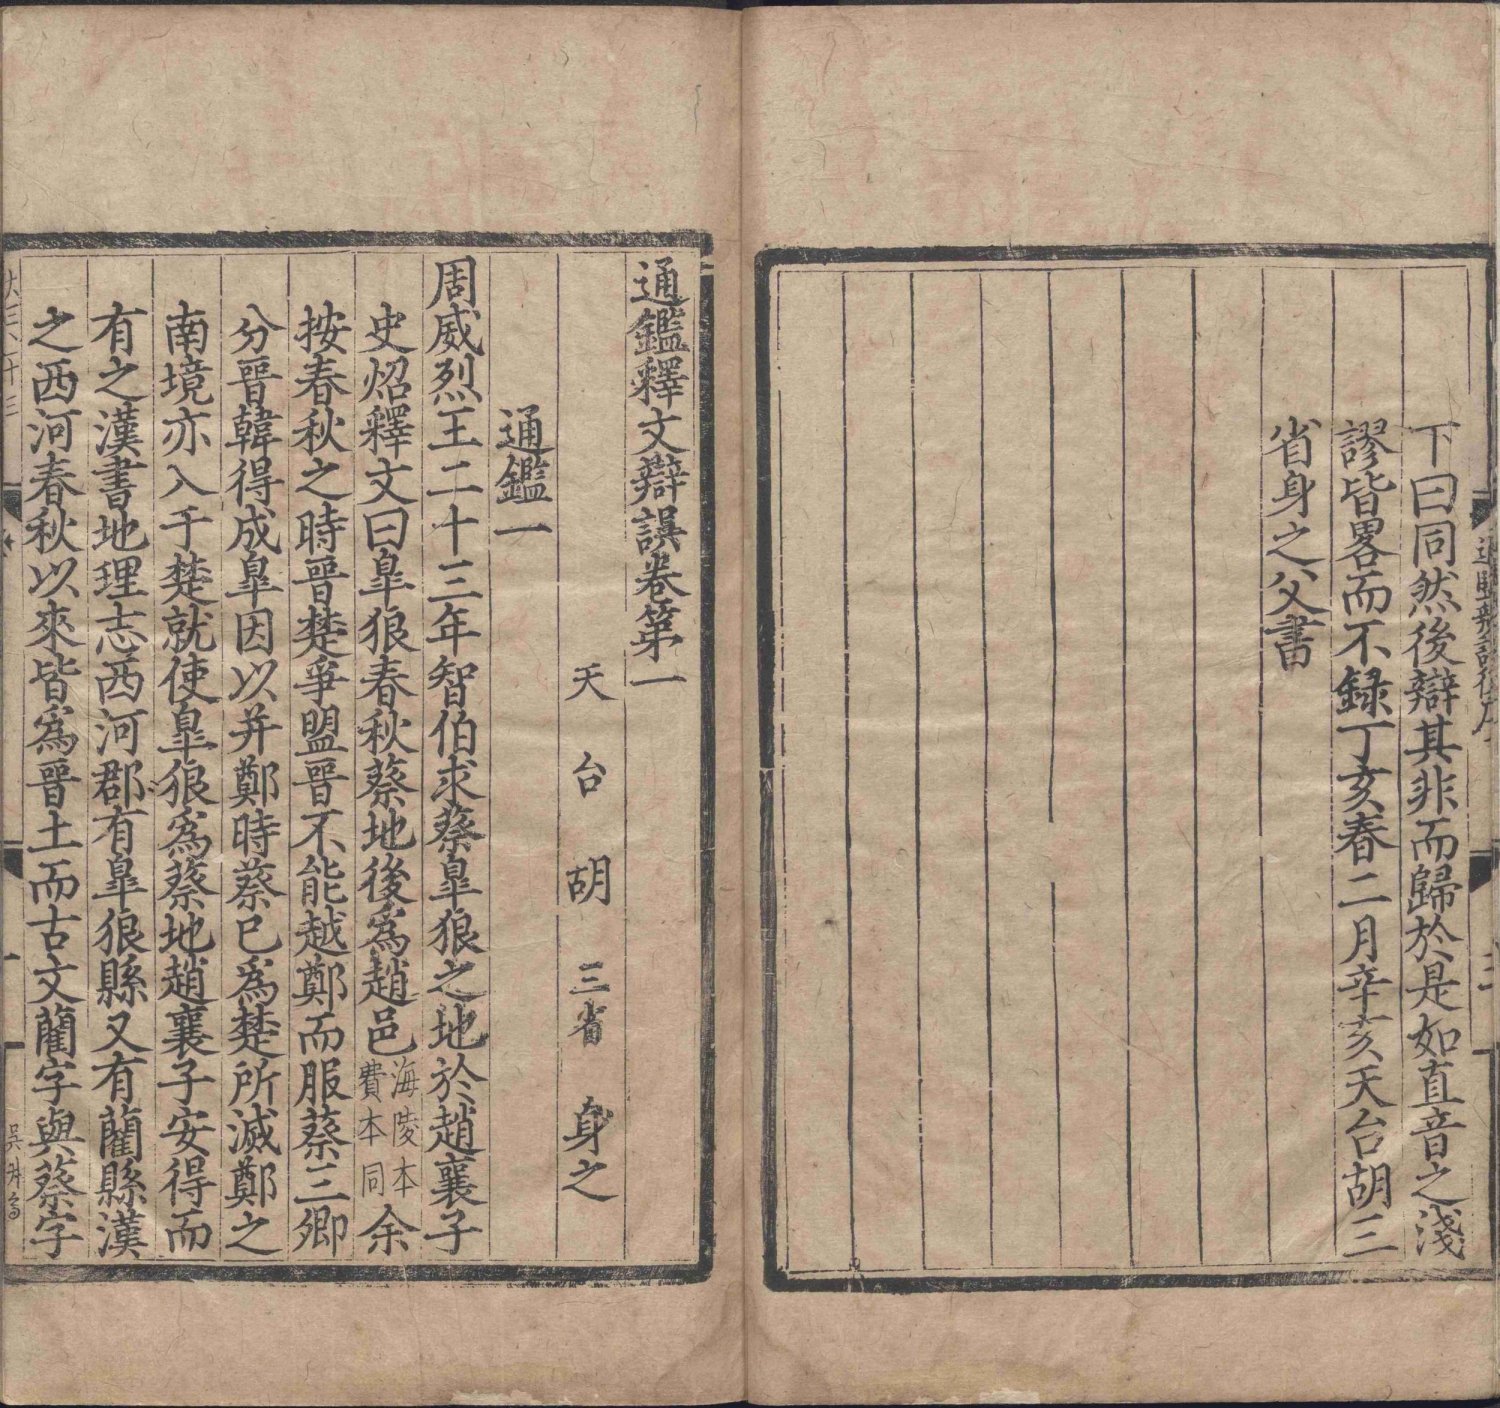 下曰同然後辯其非而歸於是如直音之淺
謬皆畧而不録丁亥春二月辛亥天台胡三
省身之父書
通鑑釋文辯誤卷第一
天台胡三省身之
通鑑一
周威烈王二十三年智伯求蔡臯狼之地於趙襄子
史炤釋文曰臯狼春秋蔡地後爲趙邑海陵本費本同余
按春秋之時晉楚爭盟晉不能越鄭而服蔡三卿
分晉韓得成臯因以并鄭時蔡已爲楚所滅鄭之
南境亦入于楚就使臯狼爲蔡地趙襄子安得而
有之漢書地理志西河郡有臯狼縣又有藺縣漢
之西河春秋以來皆爲晉土而古文藺字與蔡字